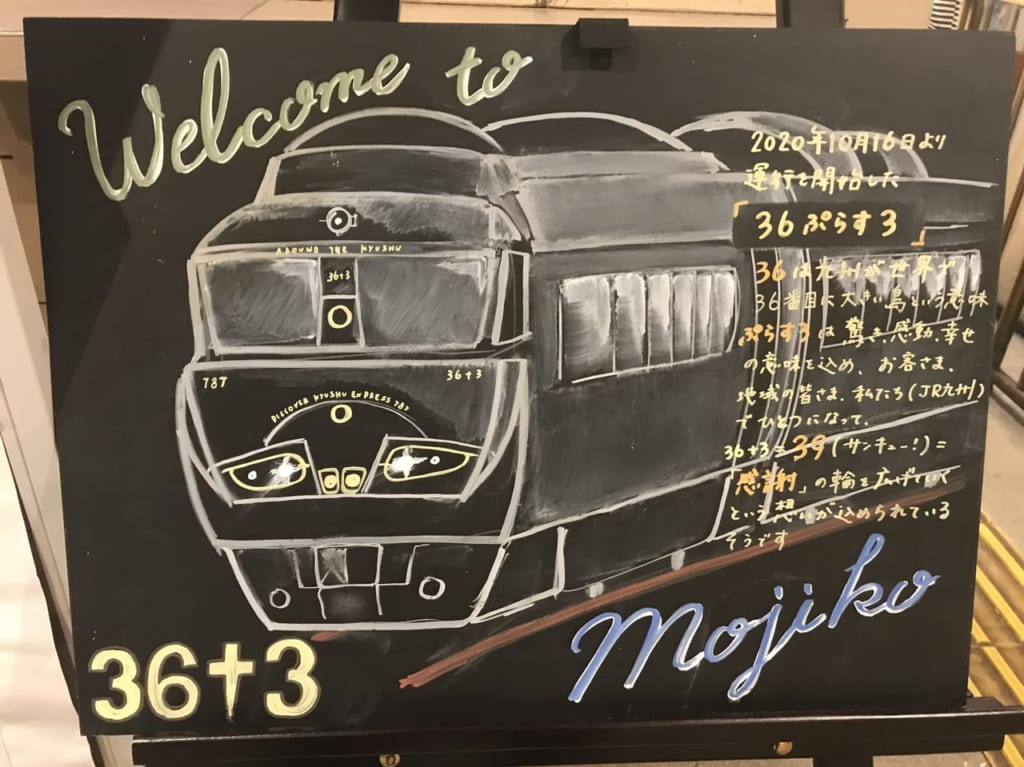 Welcome to
2020年10月16日より
運行を開始した
「36ぷらす3」
36は九州が世界で
36番目に大きい島という意味
ぷらす3は、驚き、感動、幸せ
の意味を込め、お客さま、
地域の皆さま、私たち(JR九州)
でひとつになって、
36+3=39(サンキュー!)=
「感謝」の輪を広げていく
という想いが込められている
そうです
AROUND THE KYUSHU
36+3
787
36+3
DISCOVER KYUSHU EXPRESS 787
36+3
Mojiko